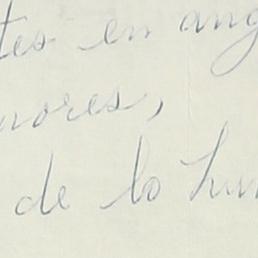 tes en ang
nores,
de lo hum